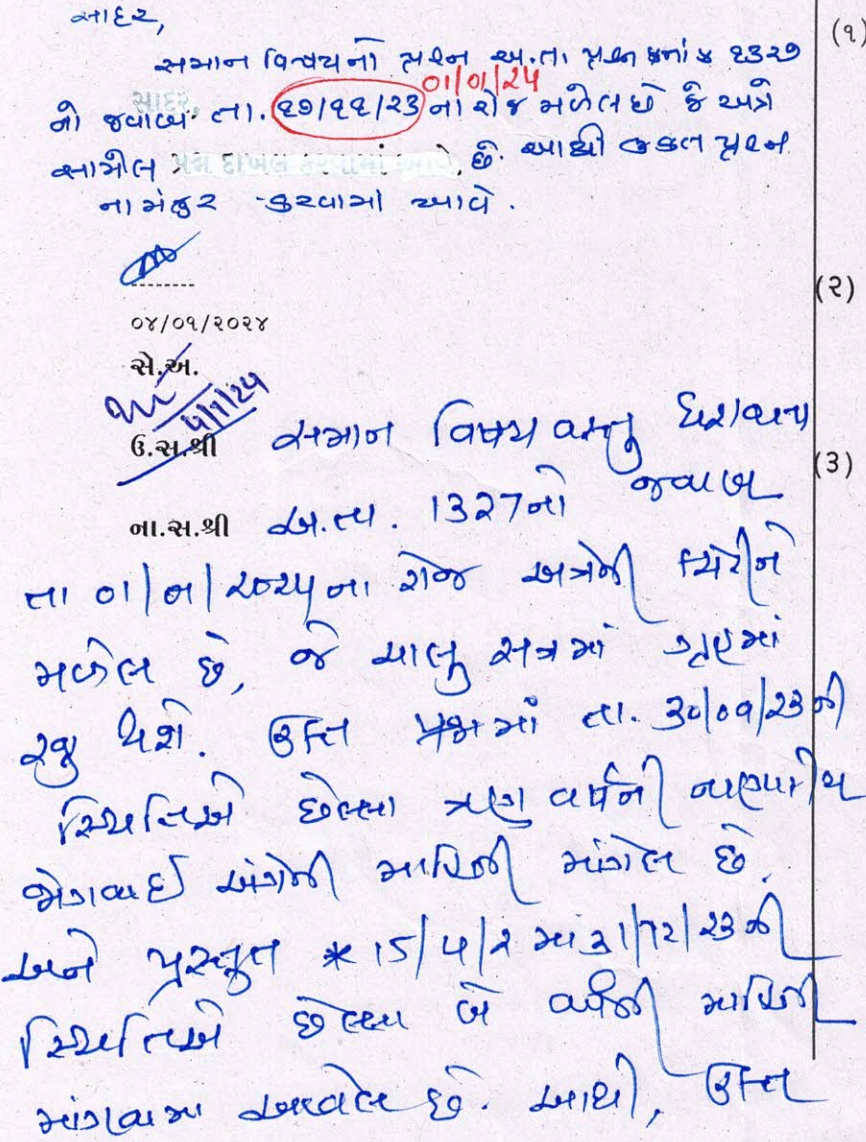 સાદર,
સમાન વિષયનો પ્રશ્ન અ.તા. પ્રશ્ન ક્રમાંક ૧૩૨૭
01/01/24
નો જવાબ તા. ૧૭/૧૧/૨૩ ના રોજ મળેલ છે જે અત્રે
સામેલ છે. આથી પ્રશ્ન
નામંજુર કરવામાં આવે.
(૧)
(૨)
૦૪/૦૧/૨૦૨૪
સે.અ.
ઉ.સ.શ્રી સમાન વિષય વસ્તુ ધરાવતા
(૩)
ના.સ.શ્રી અ.તા. 1327નો જવાબ
તા 01/01/૨૦૨૪ના રોજ અત્રેની
મળેલ છે, જે ચાલુ સત્રમાં ગૃહમાં
રજુ થશે. ઉક્ત પ્રશ્નમાં તા. 30/09/23ની
સ્થિતિએ છેલ્લા ત્રણ વર્ષની નાણાકીય
જોગવાઈ અંગેની માહિતી માંગેલ છે.
અને પ્રસ્તુત * 15/4/2 માં 31/12/23ની
સ્થિતિએ છેલ્લા બે વર્ષની માહિતી
માંગવામા આવેલ છે. આથી, ઉક્ત